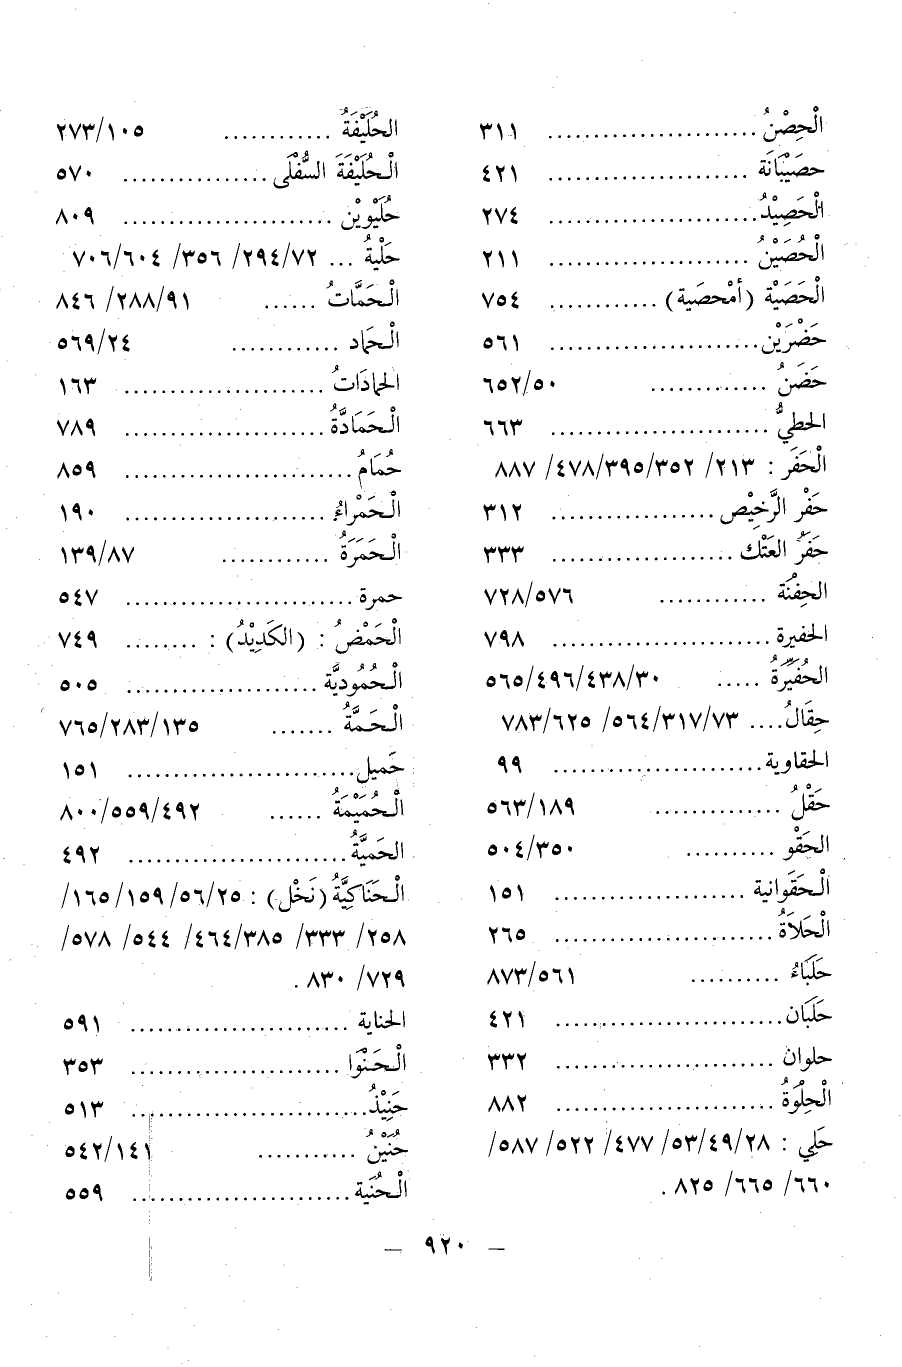 الْحِصْنُ ...................... ٣١١
حصَيْبَانَة ..................... ٤٢١
الْحَصِيْدُ ...................... ٢٧٤
الْحُصَيْنُ ..................... ٢١١
الْحَصَيْة (أمْحصَية) ........... ٧٥٤
حَضْرَيْن ...................... ٥٦١
حَضَنُ ............ ٦٥٢/٥٠
الحطيُّ ....................... ٦٦٣
الْحَفَر : ٢١٣/ ٤٧٨/٣٩٥/٣٥٢/ ٨٨٧
حَفْر الرَّخِيْص ................. ٣١٢
حَفَرُ العَتْك ................... ٣٣٣
الحِفْنَة ............ ٧٢٨/٥٧٦
الحفيرة ....................... ٧٩٨
الحُفَيِّرَةُ ..... ٥٦٥/٤٩٦/٤٣٨/٣٠
حِقَالُ .... ٥٦٤/٣١٧/٧٣/ ٧٨٣/٦٢٥
الحقاوية ...................... ٩٩
حَقْلُ .............. ٥٦٣/١٨٩
الحَقْو .......... ٥٠٤/٣٥٠
الْحَقَوانية .................... ١٥١
الْحَلاَةُ ....................... ٢٦٥
حَلَبَاءُ .......... ٨٧٣/٥٦١
حَلَبَان ........................ ٤٢١
حلوان ....................... ٣٣٢
الْحِلْوَةُ ....................... ٨٨٢
حَلي : ٥٣/٤٩/٢٨/ ٤٧٧/ ٥٢٢/ ٥٨٧/
٦٦٠/ ٦٦٥/ ٨٢٥ .
الحُلَيْفَةُ ............ ٢٧٣/١٠٥
الْحُلَيْفَةَ السُّفْلَى ................ ٥٧٠
حُلَيْوِيْن ...................... ٨٠٩
حَلْيةُ ... ٢٩٤/٧٢/ ٣٥٦/ ٧٠٦/٦٠٤
الْحَمَّاتُ ...... ٢٨٨/٩١/ ٨٤٦
الْحَماد ............ ٥٦٩/٢٤
الحمادَاتُ ..................... ١٦٣
الْحَمَادَّةُ ..................... ٧٨٩
حُمَامُ ........................ ٨٥٩
الْحَمْراءُ ...................... ١٩٠
الْحَمَرَةُ ............ ١٣٩/٨٧
حمرة ........................ ٥٤٧
الْحَمْضُ : (الكَدِيْدُ) : ........ ٧٤٩
الْحُمُودِيَّة .................... ٥٠٥
الْحَمَّةُ ....... ٧٦٥/٢٨٣/١٣٥
حَميل ........................ ١٥١
الْحُمَيْمَةُ ...... ٨٠٠/٥٥٩/٤٩٢
الحَميَّةُ ....................... ٤٩٢
الْحَنَاكِيَّةُ (نَخْل) : ١٦٥/١٥٩/٥٦/٢٥/
٢٥٨/ ٣٣٣/ ٤٦٤/٣٨٥/ ٥٤٤/ ٥٧٨/
٧٢٩/ ٨٣٠ .
الحناية ....................... ٥٩١
الْحَنْوَا ...................... ٣٥٣
حَنِيْذُ ......................... ٥١٣
حُنَيْنُ ........... ٥٤٢/١٤١
الْحُنَية ....................... ٥٥٩
— ٩٢٠ —